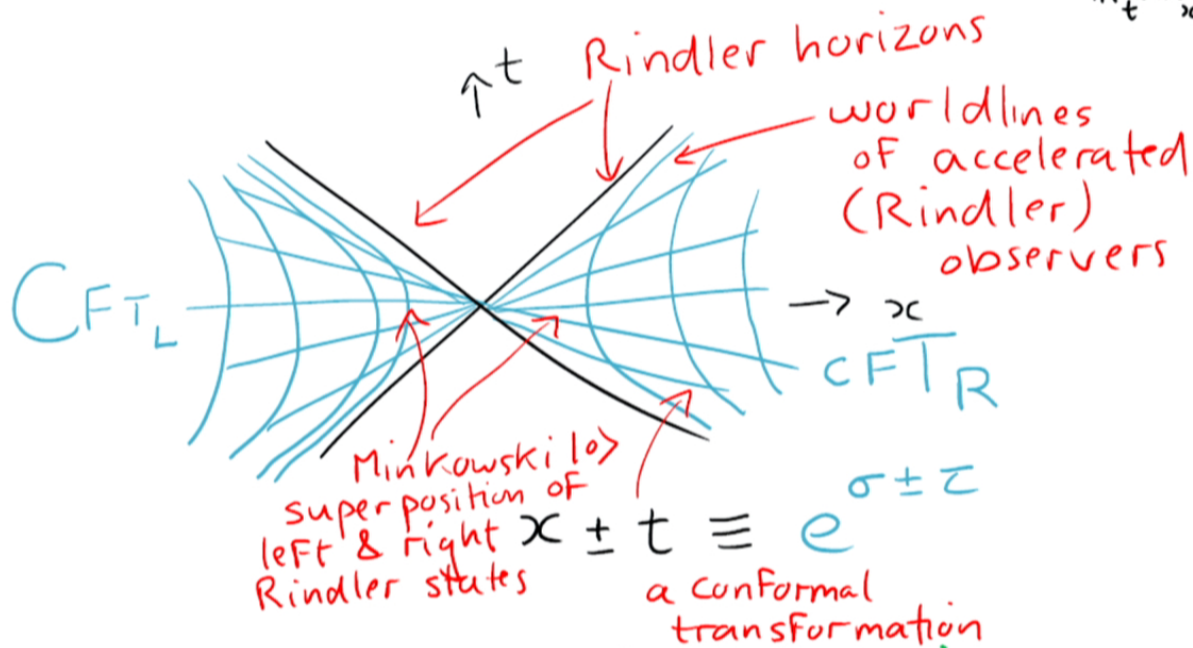 t
↑t
Rindler horizons
worldlines
of accelerated
(Rindler)
observers
CFT_L
→ x
CFT_R
Minkowski |0>
superposition of
left & right
Rindler states
x ± t ≡ e^{σ ± τ}
a conformal
transformation